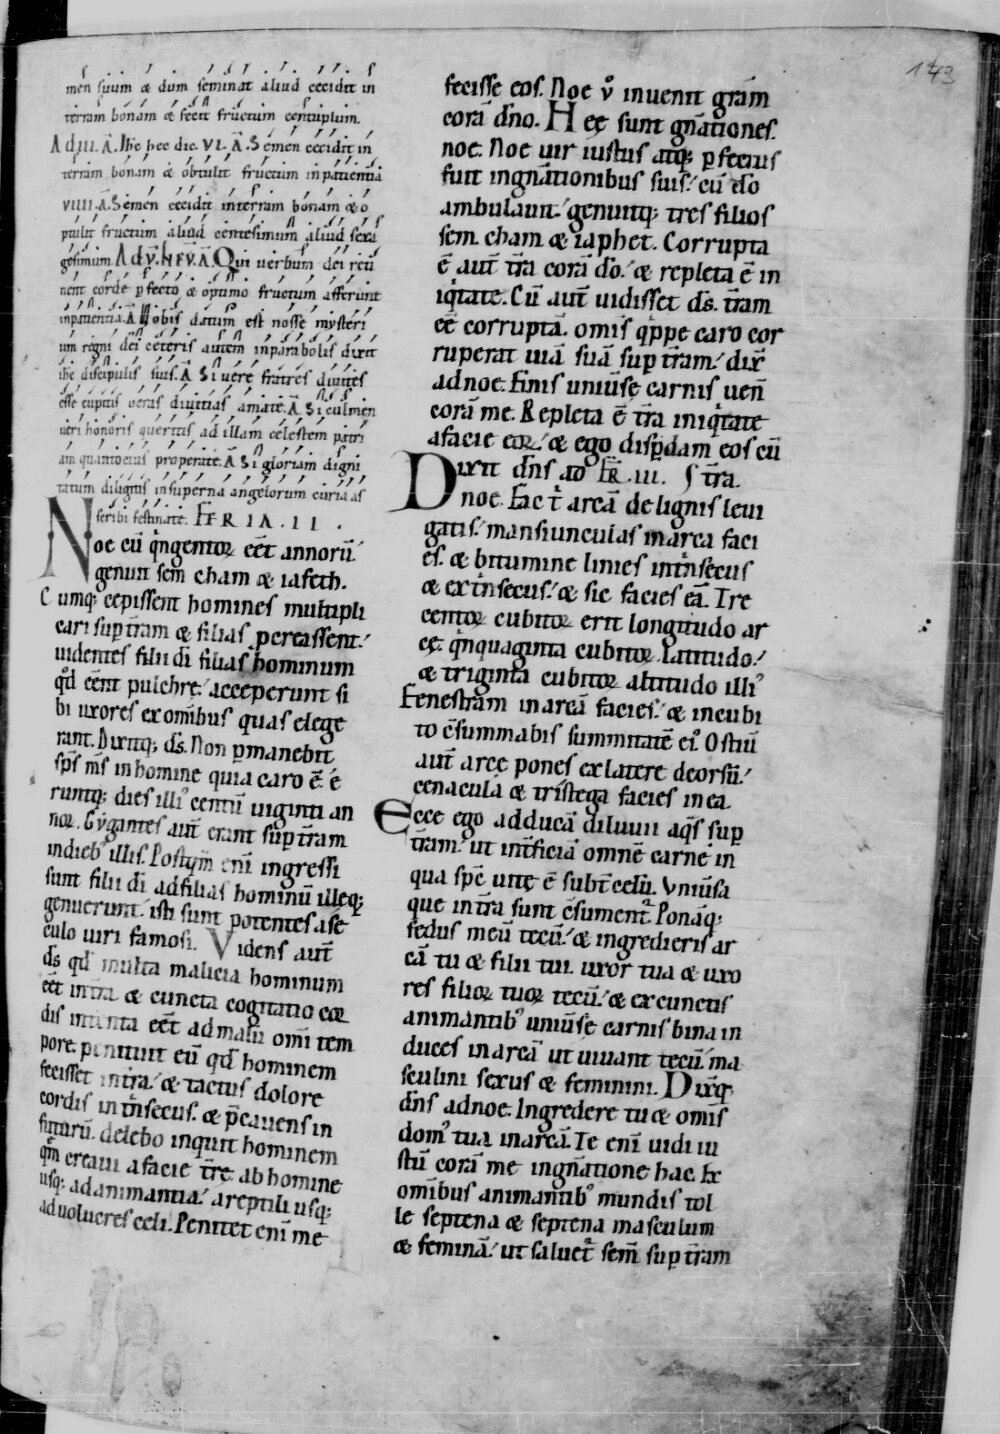 143
men suum & dum seminat aliud cecidit in
terram bonam & fecit fructum centuplum.
Ad .III. A. Ihc hec dic. VI. A. Semen cecidit in
terram bonam & obtulit fructum inpatientia
VIIII. A. Semen cecidit interram bonam & o
ptulit fructum aliud centesimum aliud sexa
gesimum. Ad v̄. IN EV̄. A. Qui uerbum dei reti
nent corde pfecto & optimo fructum afferunt
inpatientia. A Uobis datum est nosse mysteri
um regni dei ceteris autem inparabolis dixit
ihc discipulis suis. A Si uere fratres diuites
esse cupitis ueras diuitias amate. A Si culmen
ueri honoris queritis ad illam celestem patri
am quantocius properate. A Si gloriam digni
tatum diligitis insuperna angelorum curia as
scribi festinate. FERIA .II.
Noe cū qͥngentoꝝ eēt annorū.
genuit sem cham & iafeth.
Cumq; cepissent homines multipli
cari sup̱ tr̄am & filias p̱creassent.
uidentes filii dī filias hominum
qd̄ eēnt pulchre. acceperunt si
bi uxores exomībus quas elege
rant. Dixitq; ds̄. Non p̱manebit
sps̄ ms̄ inhomine quia caro ē. &
runtq; dies illiꝰ centū uiginti an
noꝝ. Gygantes aut̄ erant sup̱ tr̄am
indiebꝰ illis. Postqͣm enī ingressi
sunt filii dī adfilias hominū illeq;
genuerunt. isti sunt potentes ase
culo uiri famosi. Videns aut̄
ds̄ qd̄ multa malicia hominum
eēt intr̄a & cuncta cogitatio cor
dis intenta eēt admalū omī tem
pore. penituit eū qd̄ hominem
fecisset intr̄a. & tactus dolore
cordis intͥnsecus. & p̄cauens in
futurū. delebo inquit hominem
qm̄ creaui afacie tr̄ę ab homine
usq; adanimantia. areptili usq;
aduolucres celi. Penitet enī me
fecisse eos. Noe v̊ inuenit grām
corā dn̄o. Hęę sunt gn̄ationes.
noe. Noe uir iustus atq; p̱fectus
fuit ingn̄ationibus suis. cū do̅
ambulauit. genuitq; tres filios
sem. cham & iaphet. Corrupta
ē aut̄ tr̄a corā do̅. & repleta ē in
iqͥtate. Cū aut̄ uidisset ds̄. tr̄am
eē corruptā. omīs qͥppe caro cor
ruperat uiā suā sup̱ tr̄am. dix̄
adnoe. Finis uniūsę carnis uen̄
corā me. Repleta ē tr̄a iniqͥtate
afacie eoꝝ. & ego disp̱dam eos cū
Dixit dn̄s ad FR̄ .III. tr̄a.
noe. Fac tͥ arcā delignis leui
gatis. mansiunculas inarca faci
es. & bitumine linies intͥnsecus
& extͥnsecus. & sic facies eā. Tre
centoꝝ cubitoꝝ erit longitudo ar
cę. qͥnquaginta cubitoꝝ latitudo.
& triginta cubitoꝝ altitudo illiꝰ
Fenestram inarcā facies. & incubi
to cs̄ummabis summitatē eiꝰ. Ostiū
aut̄ arcę pones exlatere deorsū.
cenacula & tristega facies inea.
Ecce ego adducā diluuii aqͣs sup̱
tr̄am. ut intf̄iciā omnē carnē in
qua spc̄ uitę ē subt̄ celū. Vniūsa
que intr̄a sunt cs̄umentͬ. Ponāq;
fedus meū tecū. & ingredieris ar
cā tu & filii tui. uxor tua & uxo
res filioꝝ tuoꝝ tecū. & excunctis
animantibꝰ uniūsę carnis bina in
duces inarcā ut uiuant tecū. ma
sculini sexus & feminini. Dixq;
dn̄s adnoe. Ingredere tu & omīs
domꝰ tua inarcā. Te enī uidi iu
stū corā me ingn̄atione hac. Ex
omībus animantibꝰ mundis tol
le septena & septena masculum
& feminā. ut saluetͬ sem̄ sup̱ tr̄am